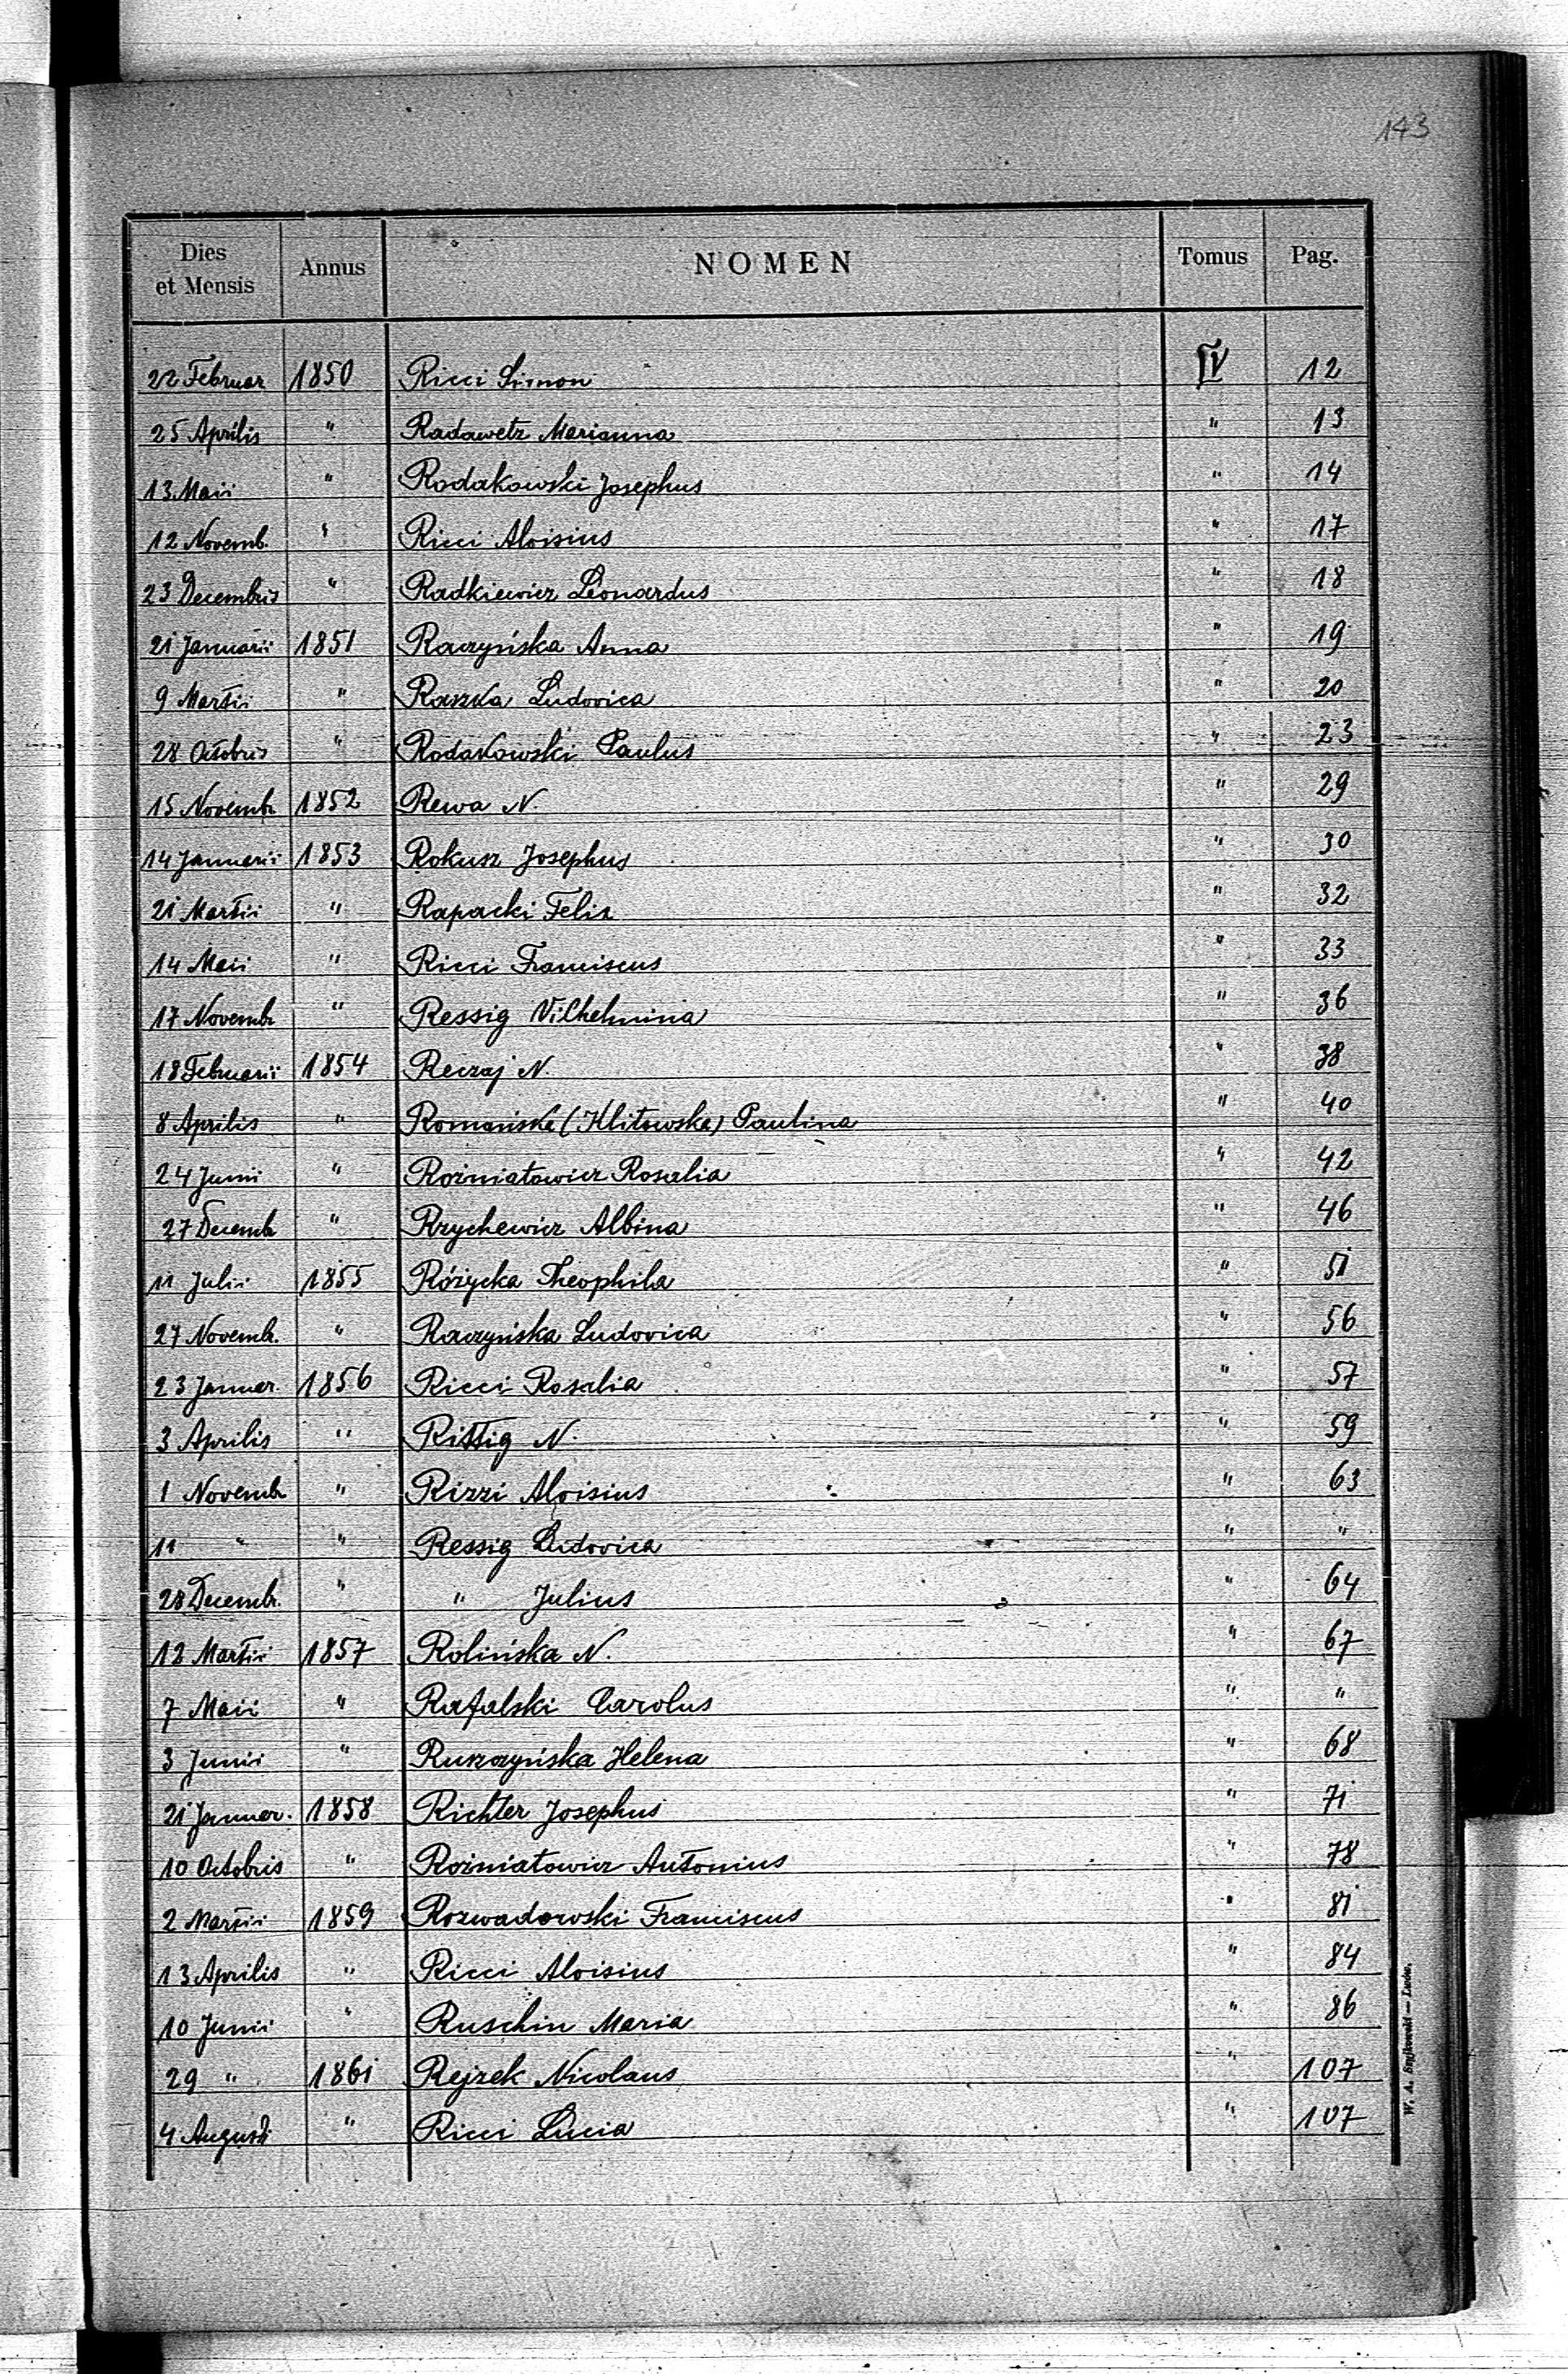 143
Dies et Mensis Annus NOMEN Tomus Pag.
22 Februar 1850 Ricci Simon IV 12
25 Aprilis " Radawetz Marianna " 13
13 Maii " Rodakowski Josephus " 14
12 Novemb. " Ricci Aloisius " 17
23 Decembris " Radkiewicz Leonardus " 18
21 Januarii 1851 Raczyńska Anna " 19
9 Martii " Raszka Ludovica " 20
28 Octobris " Rodakowski Paulus " 23
15 Novembr 1852 Rewa N. " 29
14 Januarii 1853 Rokusz Josephus " 30
21 Martii " Rapacki Felix " 32
14 Maii " Ricci Franciscus " 33
17 Novembr " Ressig Vilhelmina " 36
18 Februarii 1854 Reczaj N. " 38
8 Aprilis " Romańska (Klitowska) Paulina " 40
24 Junii " Rożniatowicz Rosalia " 42
27 Decemb " Rzychewicz Albina " 46
11 Julii 1855 Różycka Theophila " 51
27 Novembr. " Raczyńska Ludovica " 56
23 Januar. 1856 Ricci Rosalia " 57
3 Aprilis " Rittig N. " 59
1 Novembr " Rizzi Aloisius " 63
11 " " Ressig Ludovica " "
28 Decembr. " " Julius " 64
12 Martii 1857 Rolińska N. " 67
7 Maii " Rafalski Carolus " "
3 Junii " Ruszczyńska Helena " 68
21 Januar. 1858 Richter Josephus " 71
10 Octobris " Rożniatowicz Antonius " 78
2 Martii 1859 Rozwadowski Franciscus " 81
13 Aprilis " Ricci Aloisius " 84
10 Junii " Ruschin Maria " 86
29 " 1861 Rejzek Nicolaus " 107
4 Augusti " Ricci Lucia " 107
W. A. Szyjkowski — Lwów.